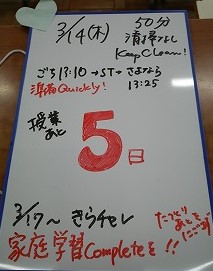 3/14(木) 50分
清掃なし
Keep Clean!
ごち13:10→ST→さよなら
準備Quickly! 13:25
授業
あと
5日
3/17〜 きらチャレ
家庭学習Completeを!!